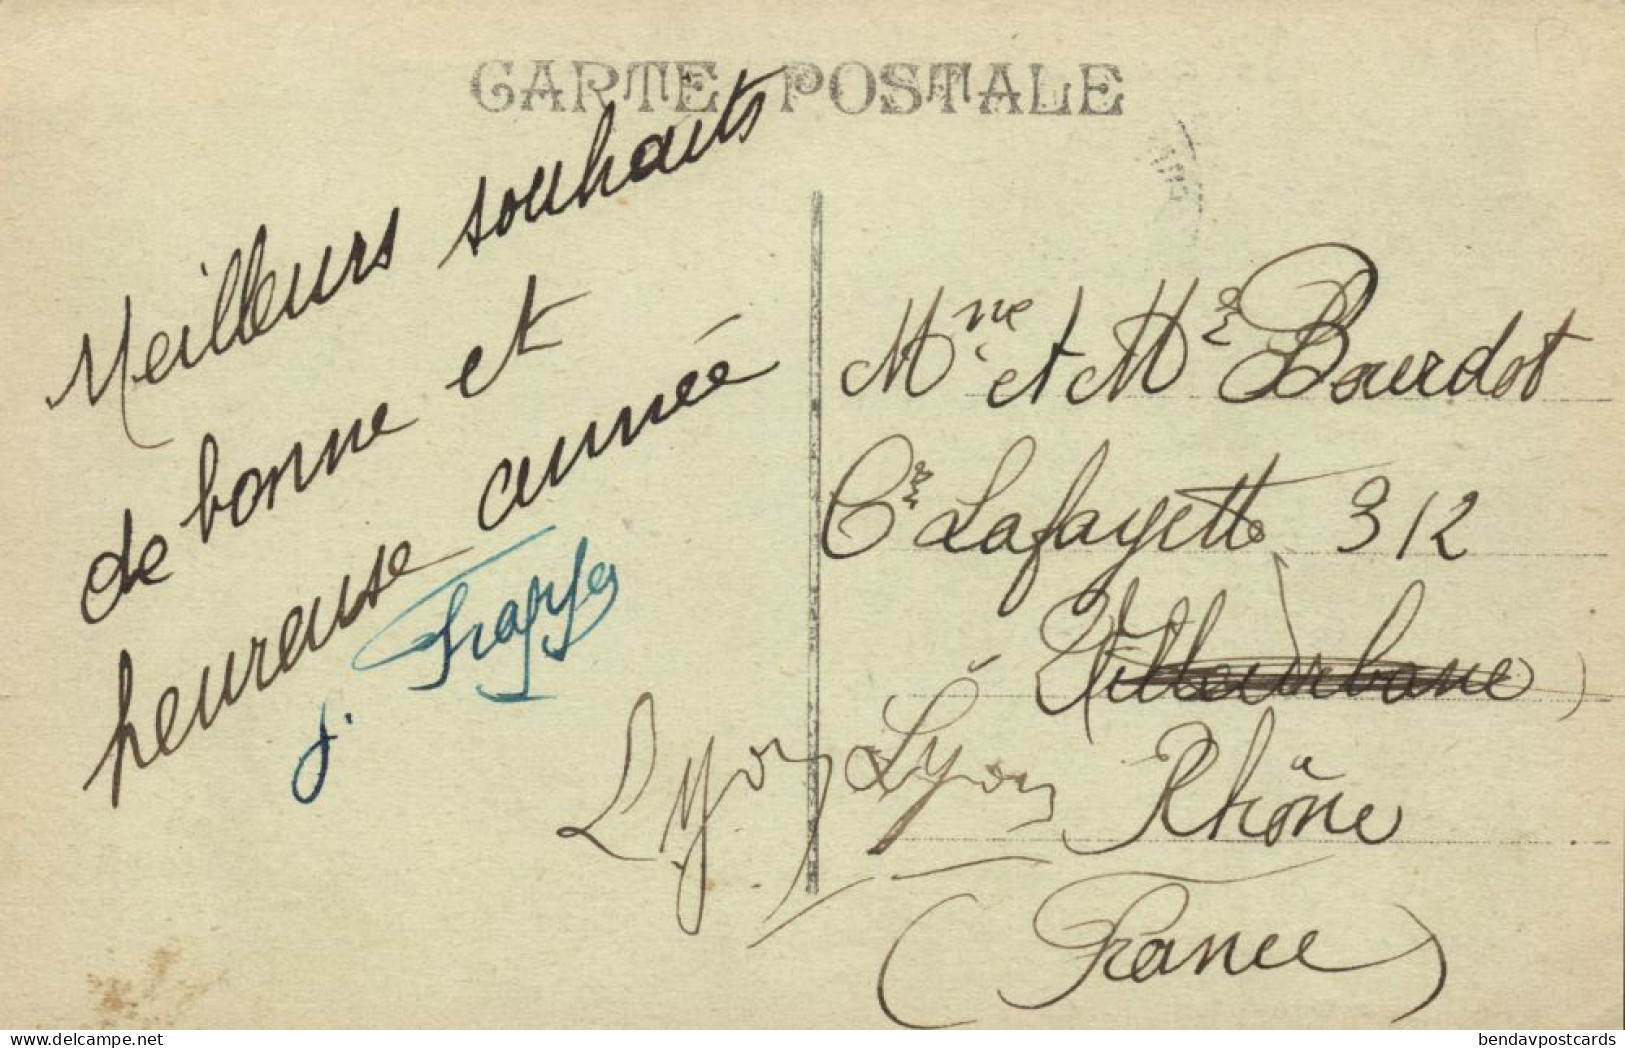 CARTE POSTALE
Meilleurs souhaits
de bonne et
heureuse année
J.
Mme et Mr Bourdot
Crs Lafayette 312
Villeurbane
Lyon Lyon Rhône
(France)
delcampe.net
bendavpostcards